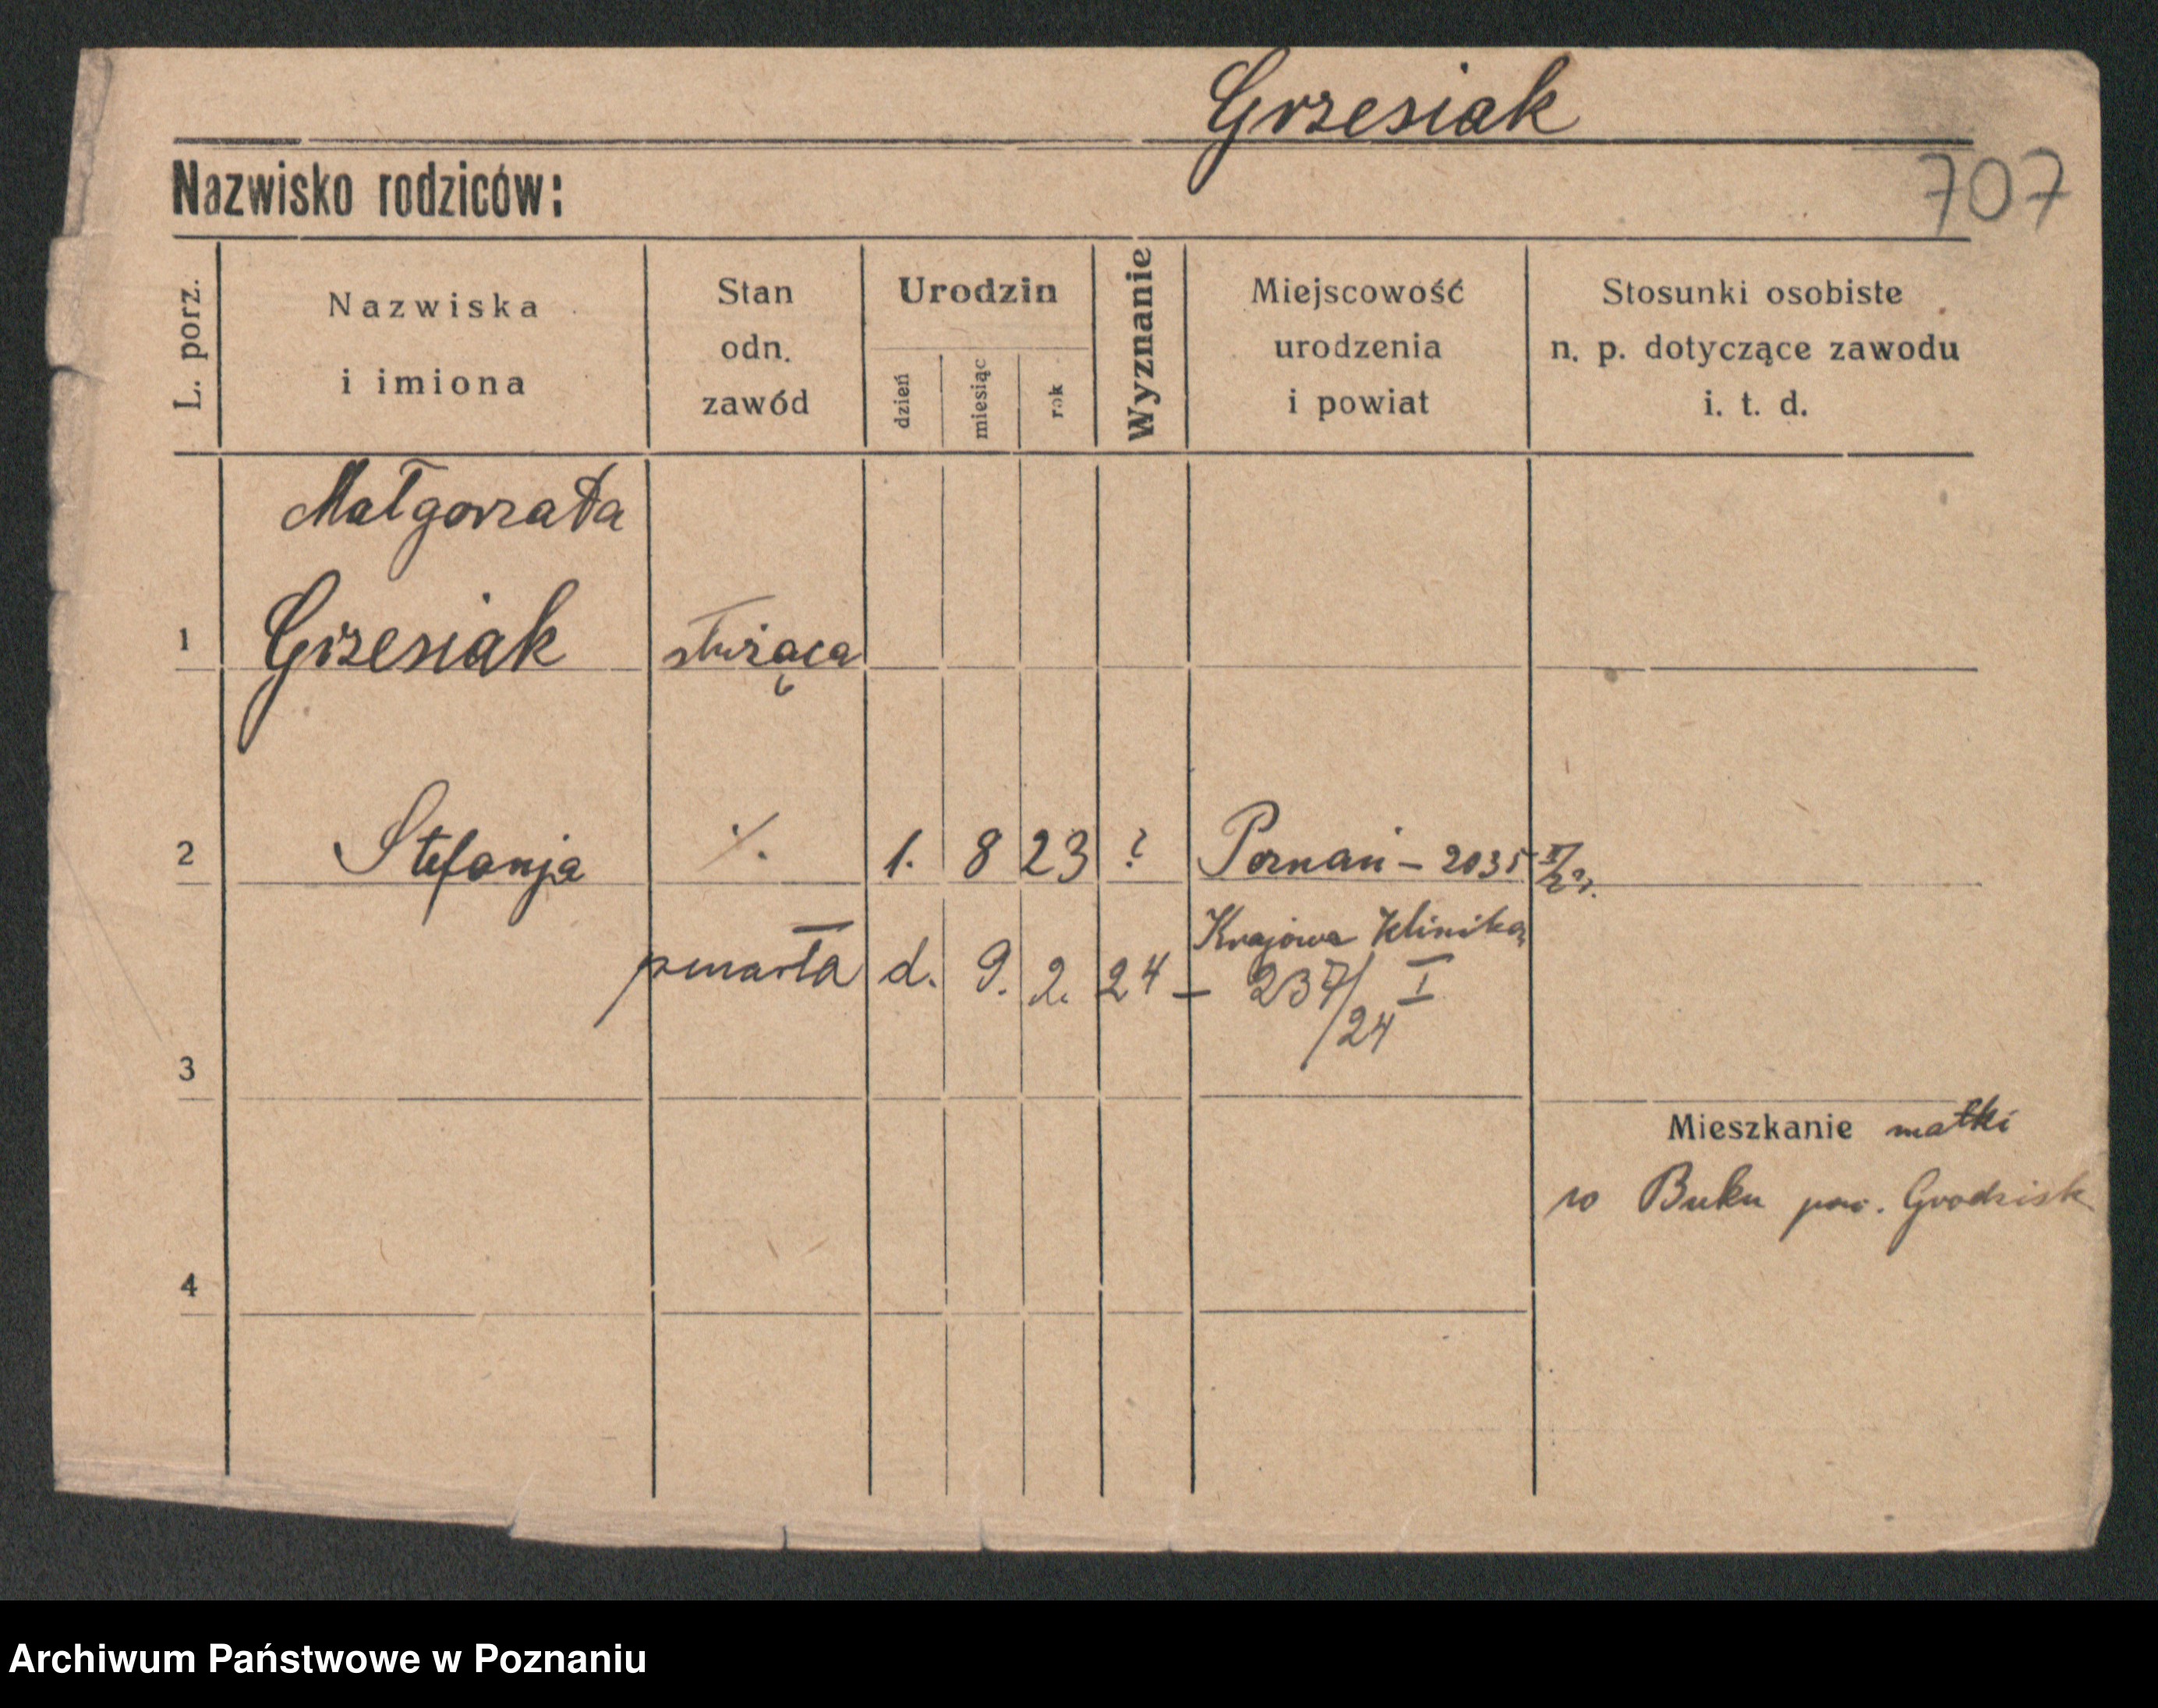 Grzesiak
Nazwisko rodziców:
707
L. porz.
Nazwiska
i imiona
Stan
odn.
zawód
Urodzin
dzień
miesiąc
rok
Wyznanie
Miejscowość
urodzenia
i powiat
Stosunki osobiste
n. p. dotyczące zawodu
i. t. d.
Małgorzata
1 Grzesiak służąca
2 Stefanja ·/. 1. 8 23 ? Poznań – 2035
Krajowa Klinika
zmarła d. 9. 2. 24 – 237/ I
/24
3
Mieszkanie matki
w Buku pow. Grodzisk
4
Archiwum Państwowe w Poznaniu